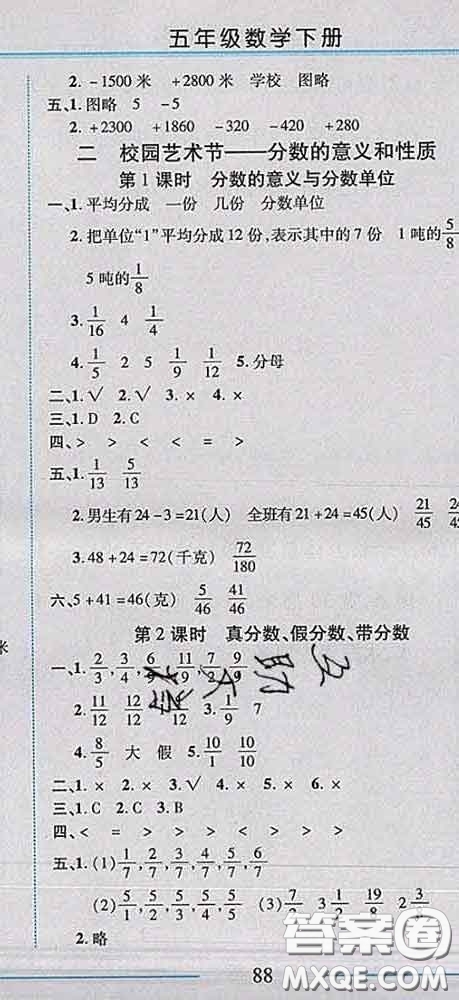 五年级数学下册
2. -1500 米 +2800 米 学校 图略
五、1. 图略 5 -5
2. +2300 +1860 -320 -420 +280
二 校园艺术节——分数的意义和性质
第 1 课时 分数的意义与分数单位
一、1. 平均分成 一份 几份 分数单位
2. 把单位“1”平均分成 12 份,表示其中的 7 份 1 吨的 5/8
5 吨的 1/8
3. 1/16 4 1/4
4. 1/5 2 5 1/9 1/12 5. 分母
二、1. √ 2. √ 3. × 4. ×
三、1. D 2. C
四、> < < < = >
五、1. 1/13 5/13
2. 男生有 24-3=21(人) 全班有 21+24=45(人) 21/45 24/45
3. 48+24=72(千克) 72/180
六、5+41=46(克) 5/46 41/46
第 2 课时 真分数、假分数、带分数
米
一、1. 2/3, 3/4, 6/9, 11/9, 7/2, 9/9
2. 11/12 12/12 /12 3. 1/9 7
4. 8/5 大 假 5. 10/1 10/10
二、1. × 2. × 3. √ 4. × 5. × 6. ×
三、1. C 2. C 3. B
四、< = > > > <
五、1. (1) 1/7, 2/7, 3/7, 4/7, 5/7, 6/7
(2) 5/1, 5/2, 5/3, 5/4, 5/5 (3) 7/2 3 1/2 19/8 2 3/8
2. 略
88
答案圈
MXQE.COM